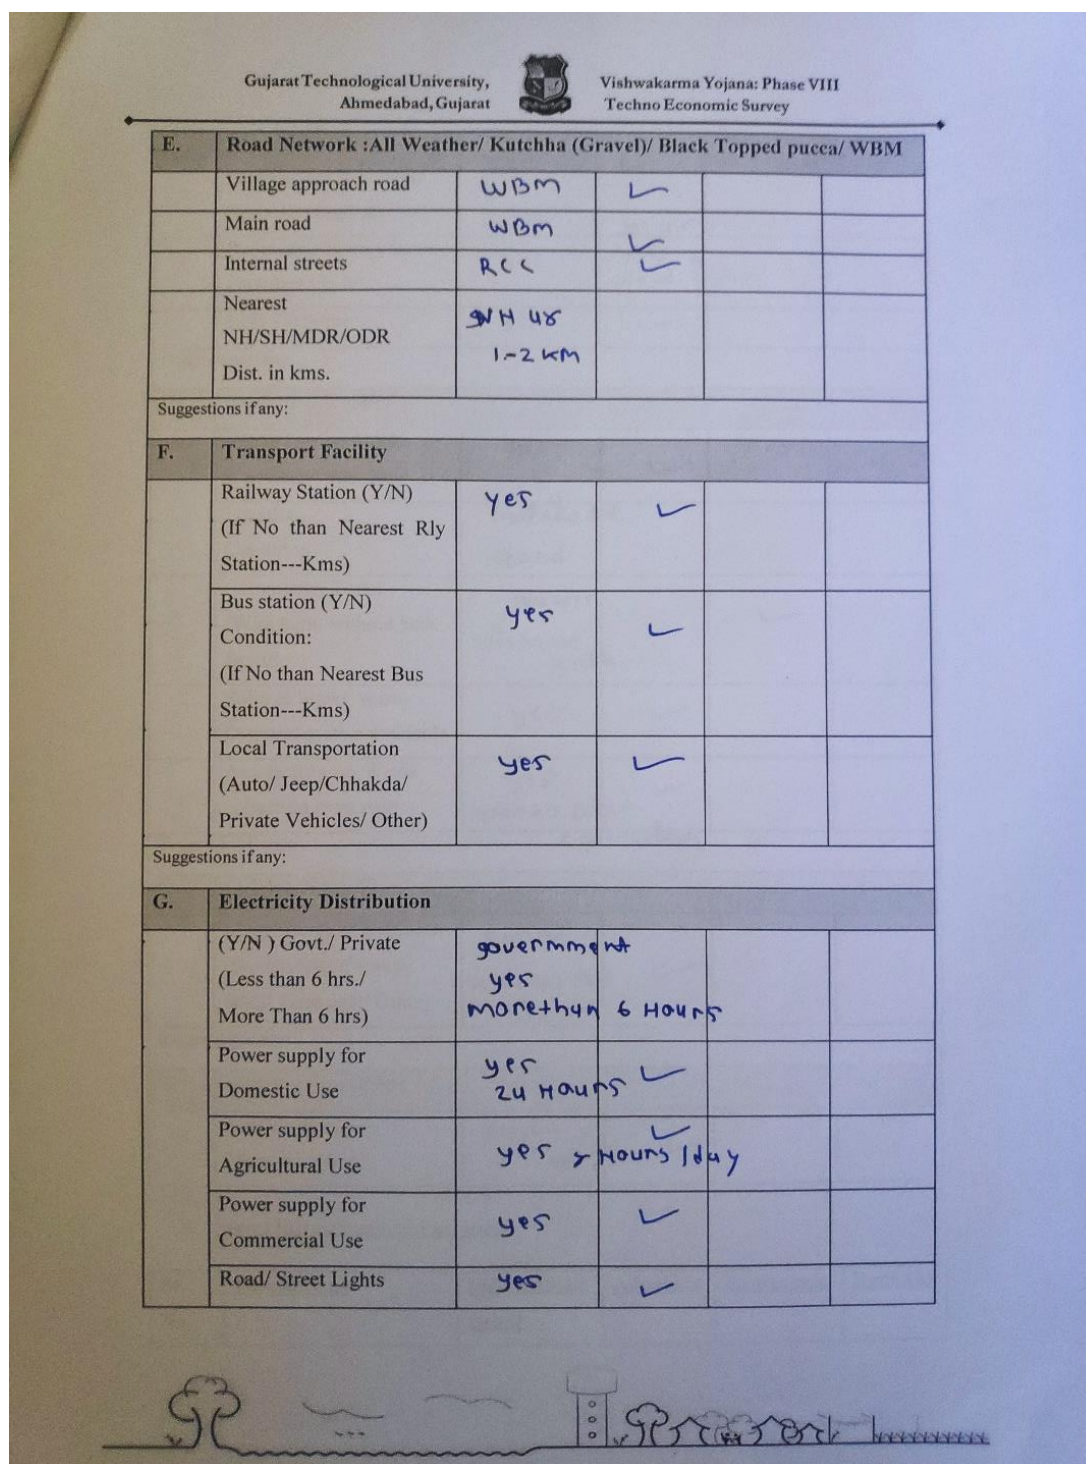 Gujarat Technological University,
Ahmedabad, Gujarat
Vishwakarma Yojana: Phase VIII
Techno Economic Survey
E. Road Network :All Weather/ Kutchha (Gravel)/ Black Topped pucca/ WBM
Village approach road WBM ✓
Main road WBM ✓
Internal streets RCC ✓
Nearest
NH/SH/MDR/ODR
Dist. in kms.
NH 48
1-2 KM
Suggestions if any:
F. Transport Facility
Railway Station (Y/N) yes ✓
(If No than Nearest Rly
Station---Kms)
Bus station (Y/N) yes ✓
Condition:
(If No than Nearest Bus
Station---Kms)
Local Transportation yes ✓
(Auto/ Jeep/Chhakda/
Private Vehicles/ Other)
Suggestions if any:
G. Electricity Distribution
(Y/N ) Govt./ Private government
(Less than 6 hrs./ yes
More Than 6 hrs) morethan 6 Hours
Power supply for yes ✓
Domestic Use 24 Hours
Power supply for ✓
Agricultural Use yes Hours /day
Power supply for ✓
Commercial Use yes
Road/ Street Lights yes ✓